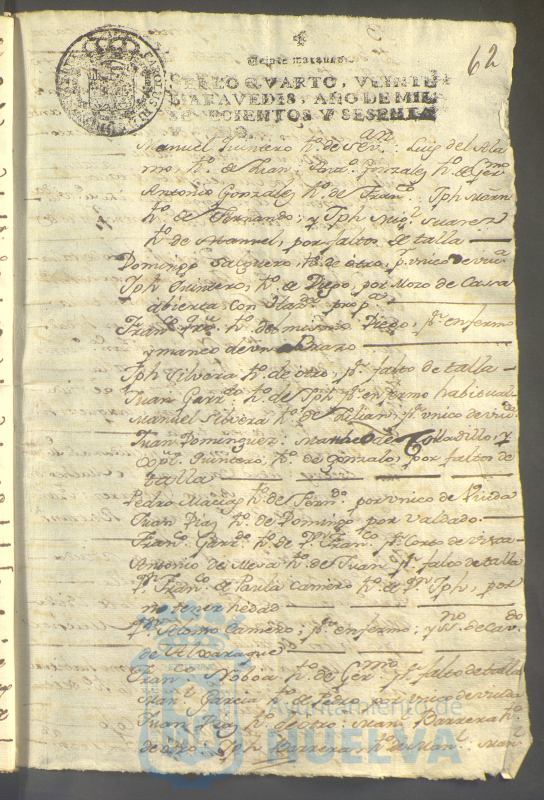 62
Veinte maravedis
SELLO QVARTO, VEINTE
MARAVEDIS, AÑO DE MIL
SETECIENTOS Y SESENTA
Manuel Quintero hº. de Sevan: Luis del Ala
mo hº. de Juan, Gonzalez hº. de Germo
Antonio Gonzalez hº. de Franco. Jph Martn
hº. de Fernando; y Jph Migl Suarez
hº. de Manuel, por faltos de talla
Domingo Salguero, hº. de otro, pr. vnico de viua
Jph Quintero, hº. de Diego, por Mozo de Casa
abierta con propa
Franco hº. del mismo Diego, pr. enfermo
y manco de un Brazo
Jph Silvera hº. de otro, pr. falto de talla
Juan Garrdo hº. de Jph pr. enfermo habitual
Manuel Silvera hº. de Julian, pr. vnico de viuda
Juan Dominguez: Tolladillo, y
Xptl. Quintero, hº. de Gonzalo, por faltos de
talla
Pedro Macias hº. de Ferndo. por vnico de Viuda
Juan Diaz hº. de Domingo por valdado.
Franco. Garrdo. hº. de Dn Franco. pr. Corto de vista
Antonio de Mesa hº. de Juan pr. falto de talla
Dn. Franco. de Paula Camero hº. de Dn Jph, por
no tener hedad
Dn. Alonso Camero, pr. enfermo; y
de Alxaraque
Franco Noboa hº. de Germo pr. falto de talla
Juan Garcia hº. de Pedro por vnico de viuda
Juan Diaz hº. de otro: Juan Barrera hº.
de otro: Jph Barrera, hº. de Manl. Manl
Ayuntamiento de
HUELVA